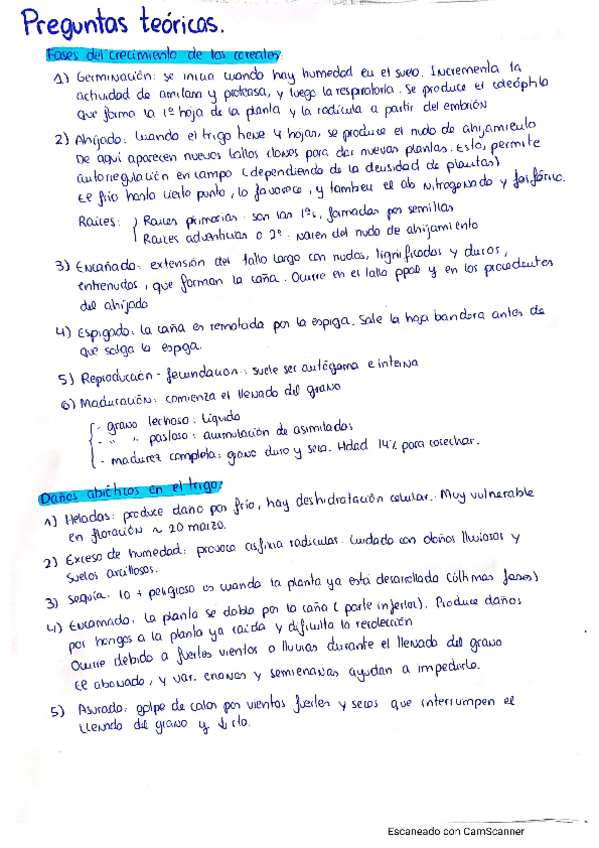 Preguntas teóricas.
Fases del crecimiento de los cereales:
1) Germinación: se inicia cuando hay humedad en el suelo. Incrementa la
actividad de amilasa y proteasa, y luego la respiratoria. Se produce el coleóptilo
que forma la 1º hoja de la planta y la radícula a partir del embrión
2) Ahijado: cuando el trigo tiene 4 hojas, se produce el nudo de ahijamiento
De aquí aparecen nuevos tallos clones para dar nuevas plantas. Esto, permite
autorregulación en campo (dependiendo de la densidad de plantas)
El frío hasta cierto punto, lo favorece, y tambien el ab nitrogenado y fosfórico.
Raíces: Raíces primarias: son las 1ªs, formadas por semillas
Raíces adventicias o 2º. Nacen del nudo de ahijamiento
3) Encañado: extensión del tallo largo con nudos, lignificados y duros,
entrenudos, que forman la caña. Ocurre en el tallo ppal y en los procedentes
del ahijado
4) Espigado: la caña es rematada por la espiga. Sale la hoja bandera antes de
que salga la espiga.
5) Reproducción - fecundación: suele ser autógama e interna
6) Maduración: comienza el llenado del grano
- grano lechoso: líquido
- " " pastoso: acumulación de asimilados
- madurez completa: grano duro y seco. Hdad 14% para cosechar.
Daños abióticos en el trigo:
1) Heladas: produce daño por frío, hay deshidratación celular. Muy vulnerable
en floración ~ 20 marzo.
2) Exceso de humedad: provoca asfixia radicular. Cuidado con otoños lluviosos y
suelos arcillosos.
3) Sequía: lo + peligroso es cuando la planta ya está desarrollada (últimas fases)
4) Encamado: la planta se dobla por la caña (parte inferior). Produce daños
por hongos a la planta ya caída y dificulta la recolección
Ocurre debido a fuertes vientos o lluvias durante el llenado del grano
El abonado, y var. enanas y semienanas ayudan a impedirlo.
5) Asurado: golpe de calor por vientos fuertes y secos que interrumpen el
llenado del grano y ↓ rto.
Escaneado con CamScanner